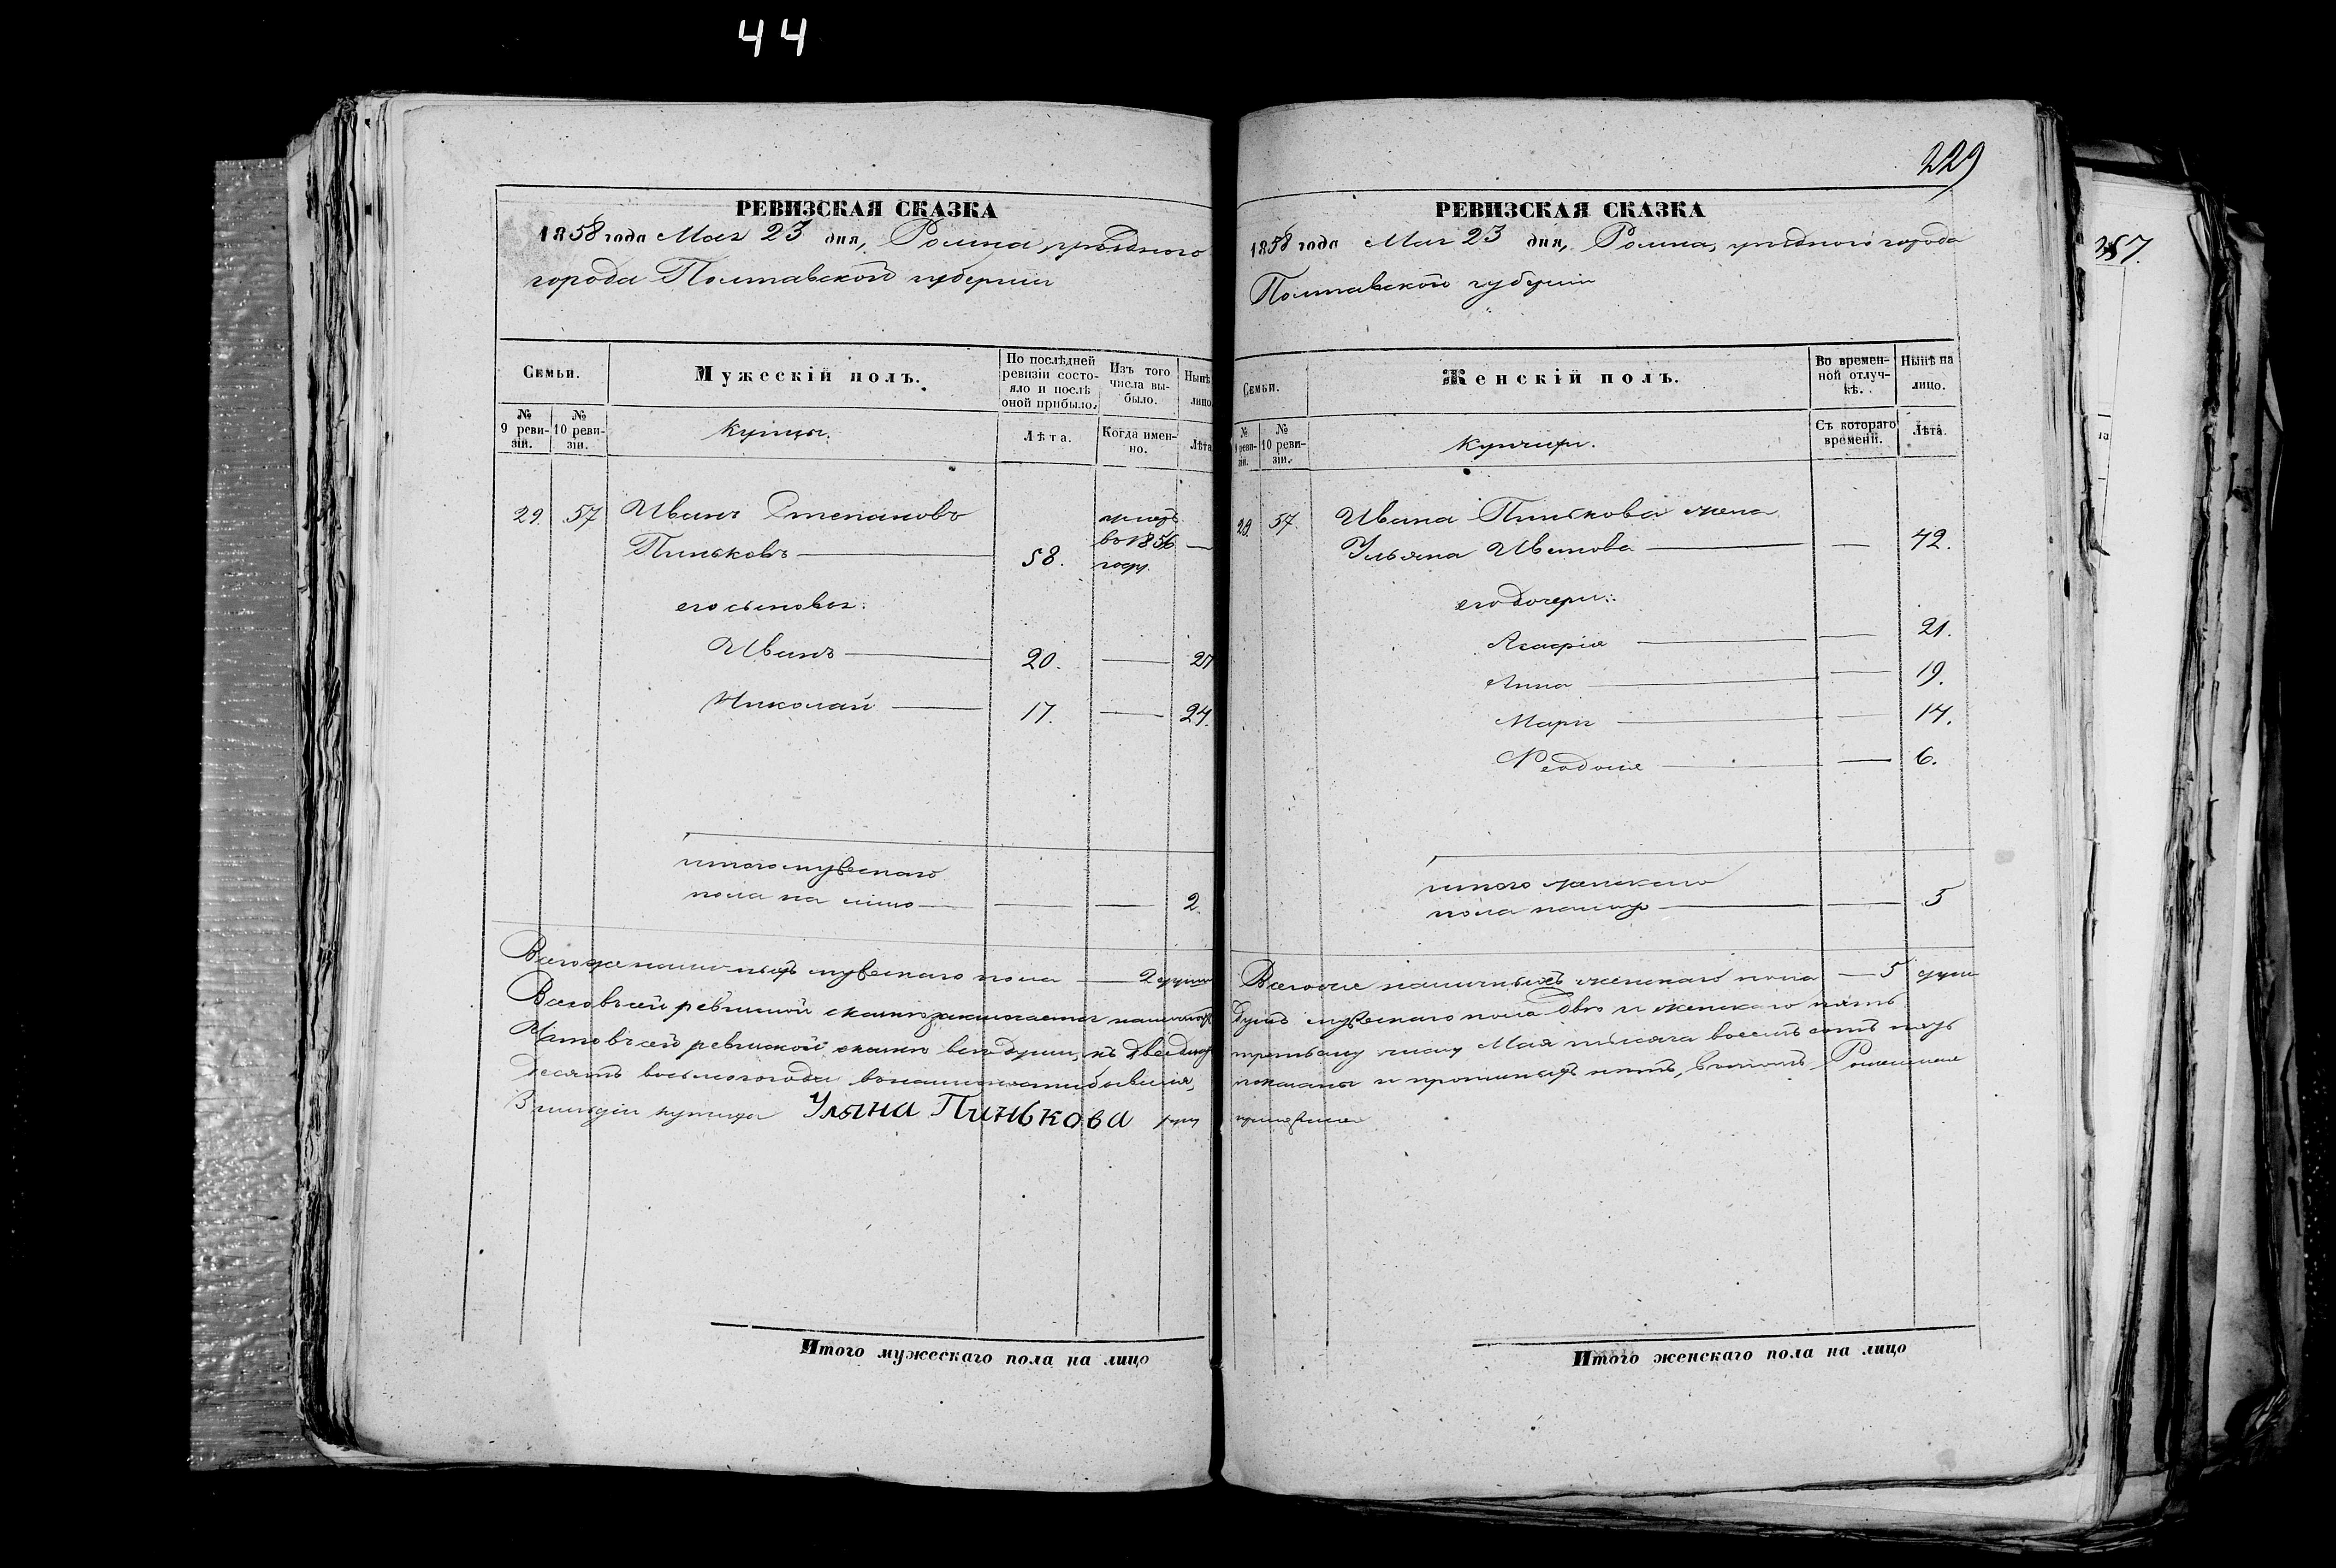 44
РЕВИЗСКАЯ СКАЗКА
1858 года Мая 23 дня, Ромна, уѣзднаго
города Полтавской губерніи
Семьи.
Мужескій полъ.
По послѣдней ревизіи состояло и послѣ оной прибыло.
Изъ того числа выбыло.
Нынѣ
лицо
№ 9 ревизіи.
№ 10 ревизіи.
Купцы.
Лѣта.
Когда именно.
Лѣта
29. 57 Иванъ Степановъ
Пиньковъ 58. умеръ во 1856 году.
его сыновья:
Иванъ 20. 27
Николай 17. 24.
итого мужескаго
пола на лицо 2
Всего же наличныхъ мужескаго пола 2 души
Всего въ сей ревизской сказкѣ заключается наличныхъ
Что въ сей ревизской сказкѣ всѣ души, къ двадцать
десятъ восьмого года
3 гильдіи купчиха Уляна Пинькова
229
РЕВИЗСКАЯ СКАЗКА
1858 года Мая 23 дня, Ромна, уѣзднаго города
Полтавской губерніи
Семьи.
Женскій полъ.
Во временной отлучкѣ.
Нынѣ на лицо.
№ 9 ревизіи.
№ 10 ревизіи.
Купчихи.
Съ котораго времени.
Лѣта.
29. 57. Ивана Пинькова жена
Ульяна Иванова 42.
его дочери:
Агафія 21.
Анна 19.
Марья 14.
Феодосія 6.
итого женскаго
пола налицо 5
Всего же наличныхъ женскаго пола 5 душъ
душъ мужескаго пола двѣ и женскаго пять
третьему числу Мая тысяча восемь сотъ пять
показаны и прописныхъ нѣтъ, въ томъ Роменская
187.
Итого мужескаго пола на лицо
Итого женскаго пола на лицо